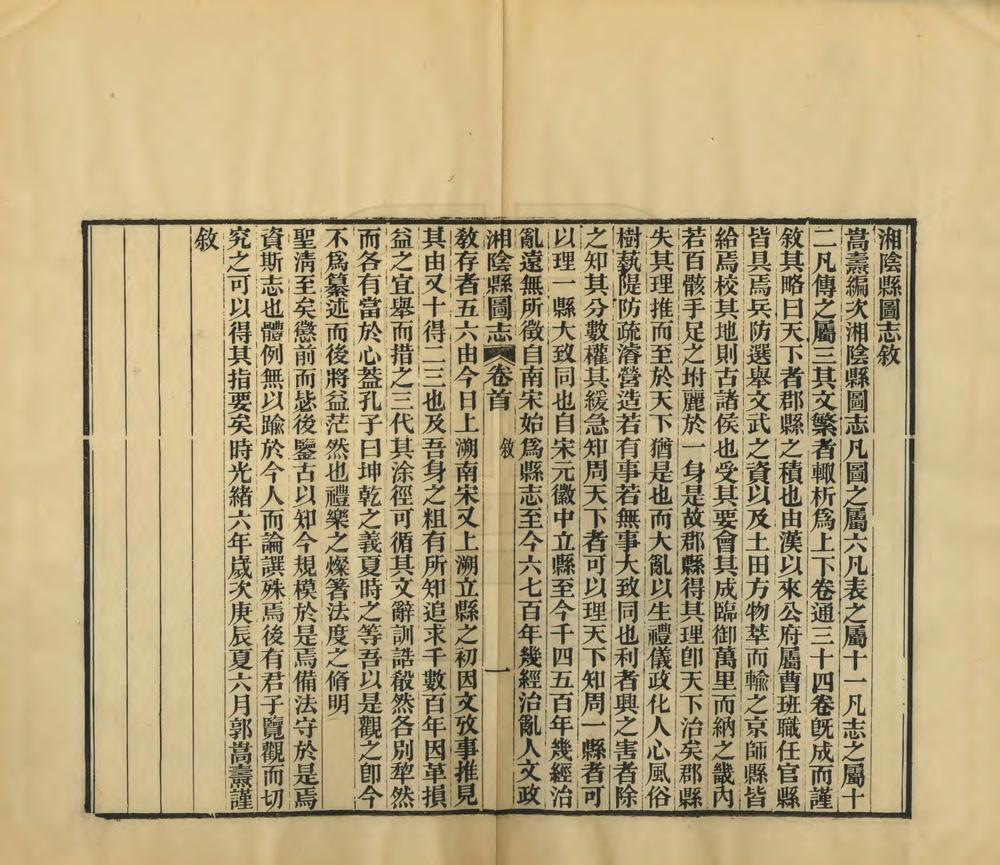 湘陰縣圖志敘
嵩燾編次湘陰縣圖志凡圖之屬六凡表之屬十一凡志之屬十
二凡傳之屬三其文繁者輒析爲上下卷通三十四卷旣成而謹
敘其略曰天下者郡縣之積也由漢以來公府屬曹班職任官縣
皆具焉兵防選舉文武之資以及土田方物萃而輸之京師縣皆
給焉校其地則古諸侯也受其要會其成臨御萬里而納之畿內
若百骸手足之坿麗於一身是故郡縣得其理卽天下治矣郡縣
失其理推而至於天下猶是也而大亂以生禮儀政化人心風俗
樹蓺隄防疏濬營造若有事若無事大致同也利者興之害者除
之知其分數權其緩急知周天下者可以理天下知周一縣者可
以理一縣大致同也自宋元徽中立縣至今千四五百年幾經治
亂遠無所徵自南宋始爲縣志至今六七百年幾經治亂人文政
湘陰縣圖志 卷首 敘 一
敎存者五六由今日上溯南宋又上溯立縣之初因文攷事推見
其由又十得二三也及吾身之粗有所知追求千數百年因革損
益之宜舉而措之三代其涂徑可循其文辭訓誥殽然各別犂然
而各有當於心葢孔子曰坤乾之義夏時之等吾以是觀之卽今
不爲纂述而後將益茫然也禮樂之燦著法度之脩明
聖淸至矣懲前而毖後鑒古以知今規模於是焉備法守於是焉
資斯志也體例無以踰於今人而論譔殊焉後有君子覽觀而切
究之可以得其指要矣時光緒六年歲次庚辰夏六月郭嵩燾謹
敘